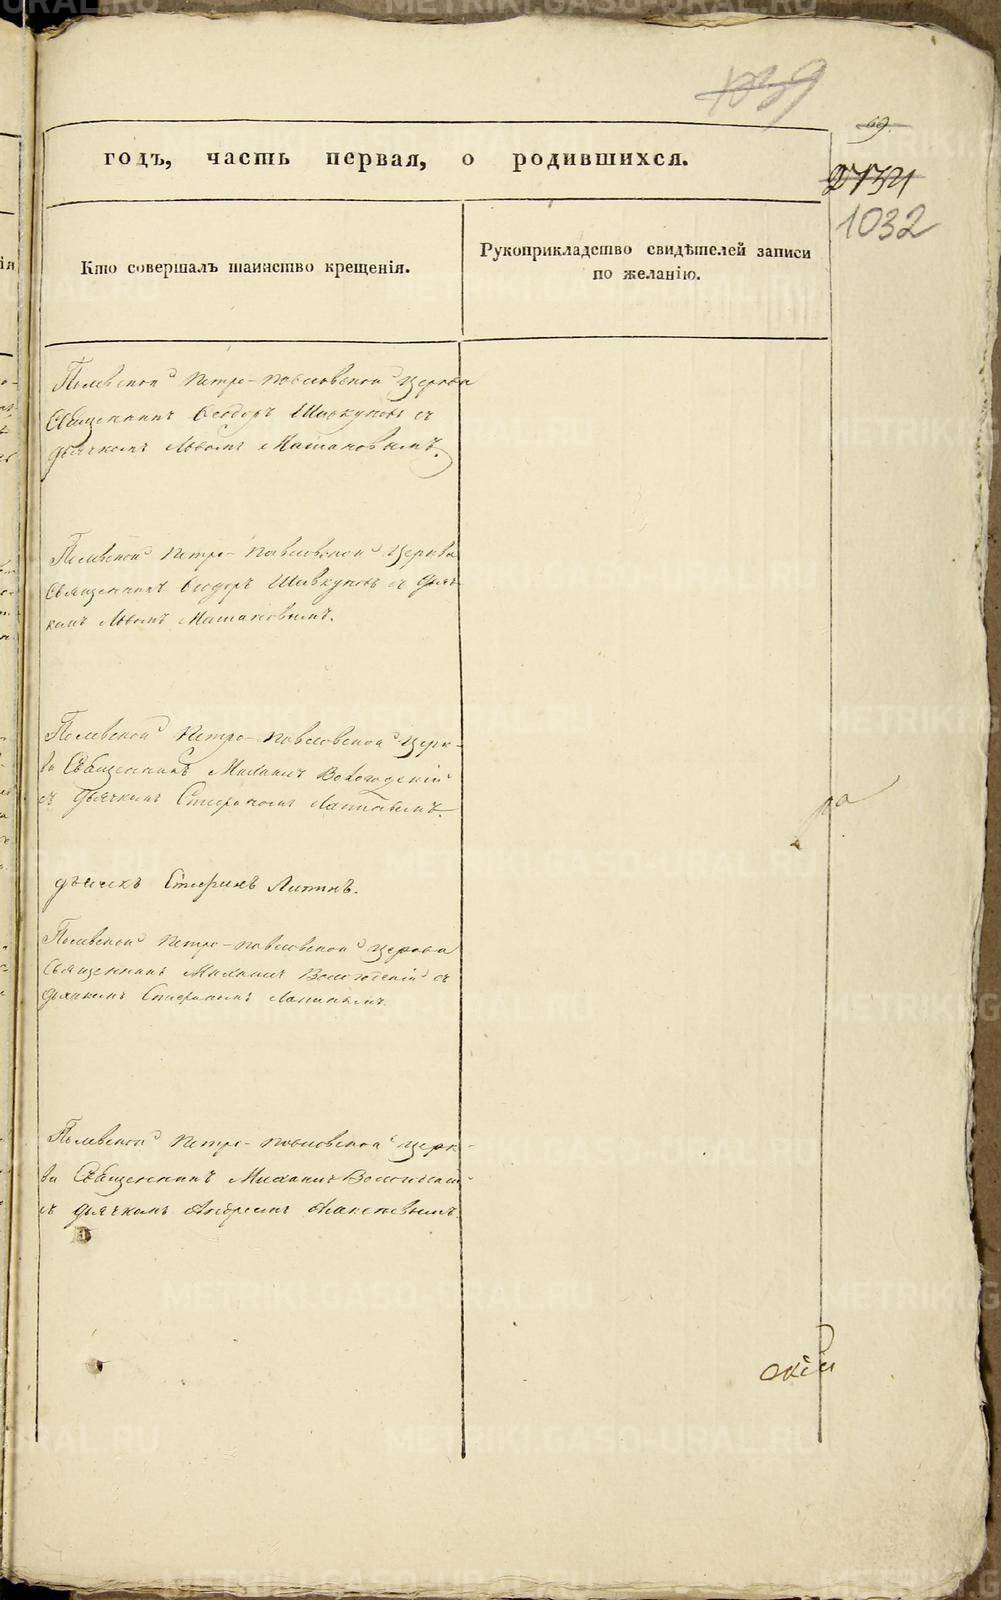 1039
69.
2731
1032
годъ, часть первая, о родившихся.
Кто совершалъ таинство крещенія.
Рукоприкладство свидѣтелей записи
по желанію.
Полевской Петро-Павловской Церкви
Священникъ Ѳеодоръ Шавкуновъ съ
дьячкомъ Львомъ
Полевской Петро-Павловской Церкви
Священникъ Ѳеодоръ Шавкуновъ съ дьяч-
комъ Львомъ
Полевской Петро-Павловской Церк-
ви Священникъ Михаилъ Вологодскій
съ дьячкомъ Стефаномъ
дьячекъ Стефанъ
Полевской Петро-Павловской Церкви
Священникъ Михаилъ Вологодскій съ
дьячкомъ Стефаномъ
Полевской Петро-Павловской Церк-
ви Священникъ Михаилъ
съ дьячкомъ Андреемъ
ра
скій
METRIKI.GASO-URAL.RU